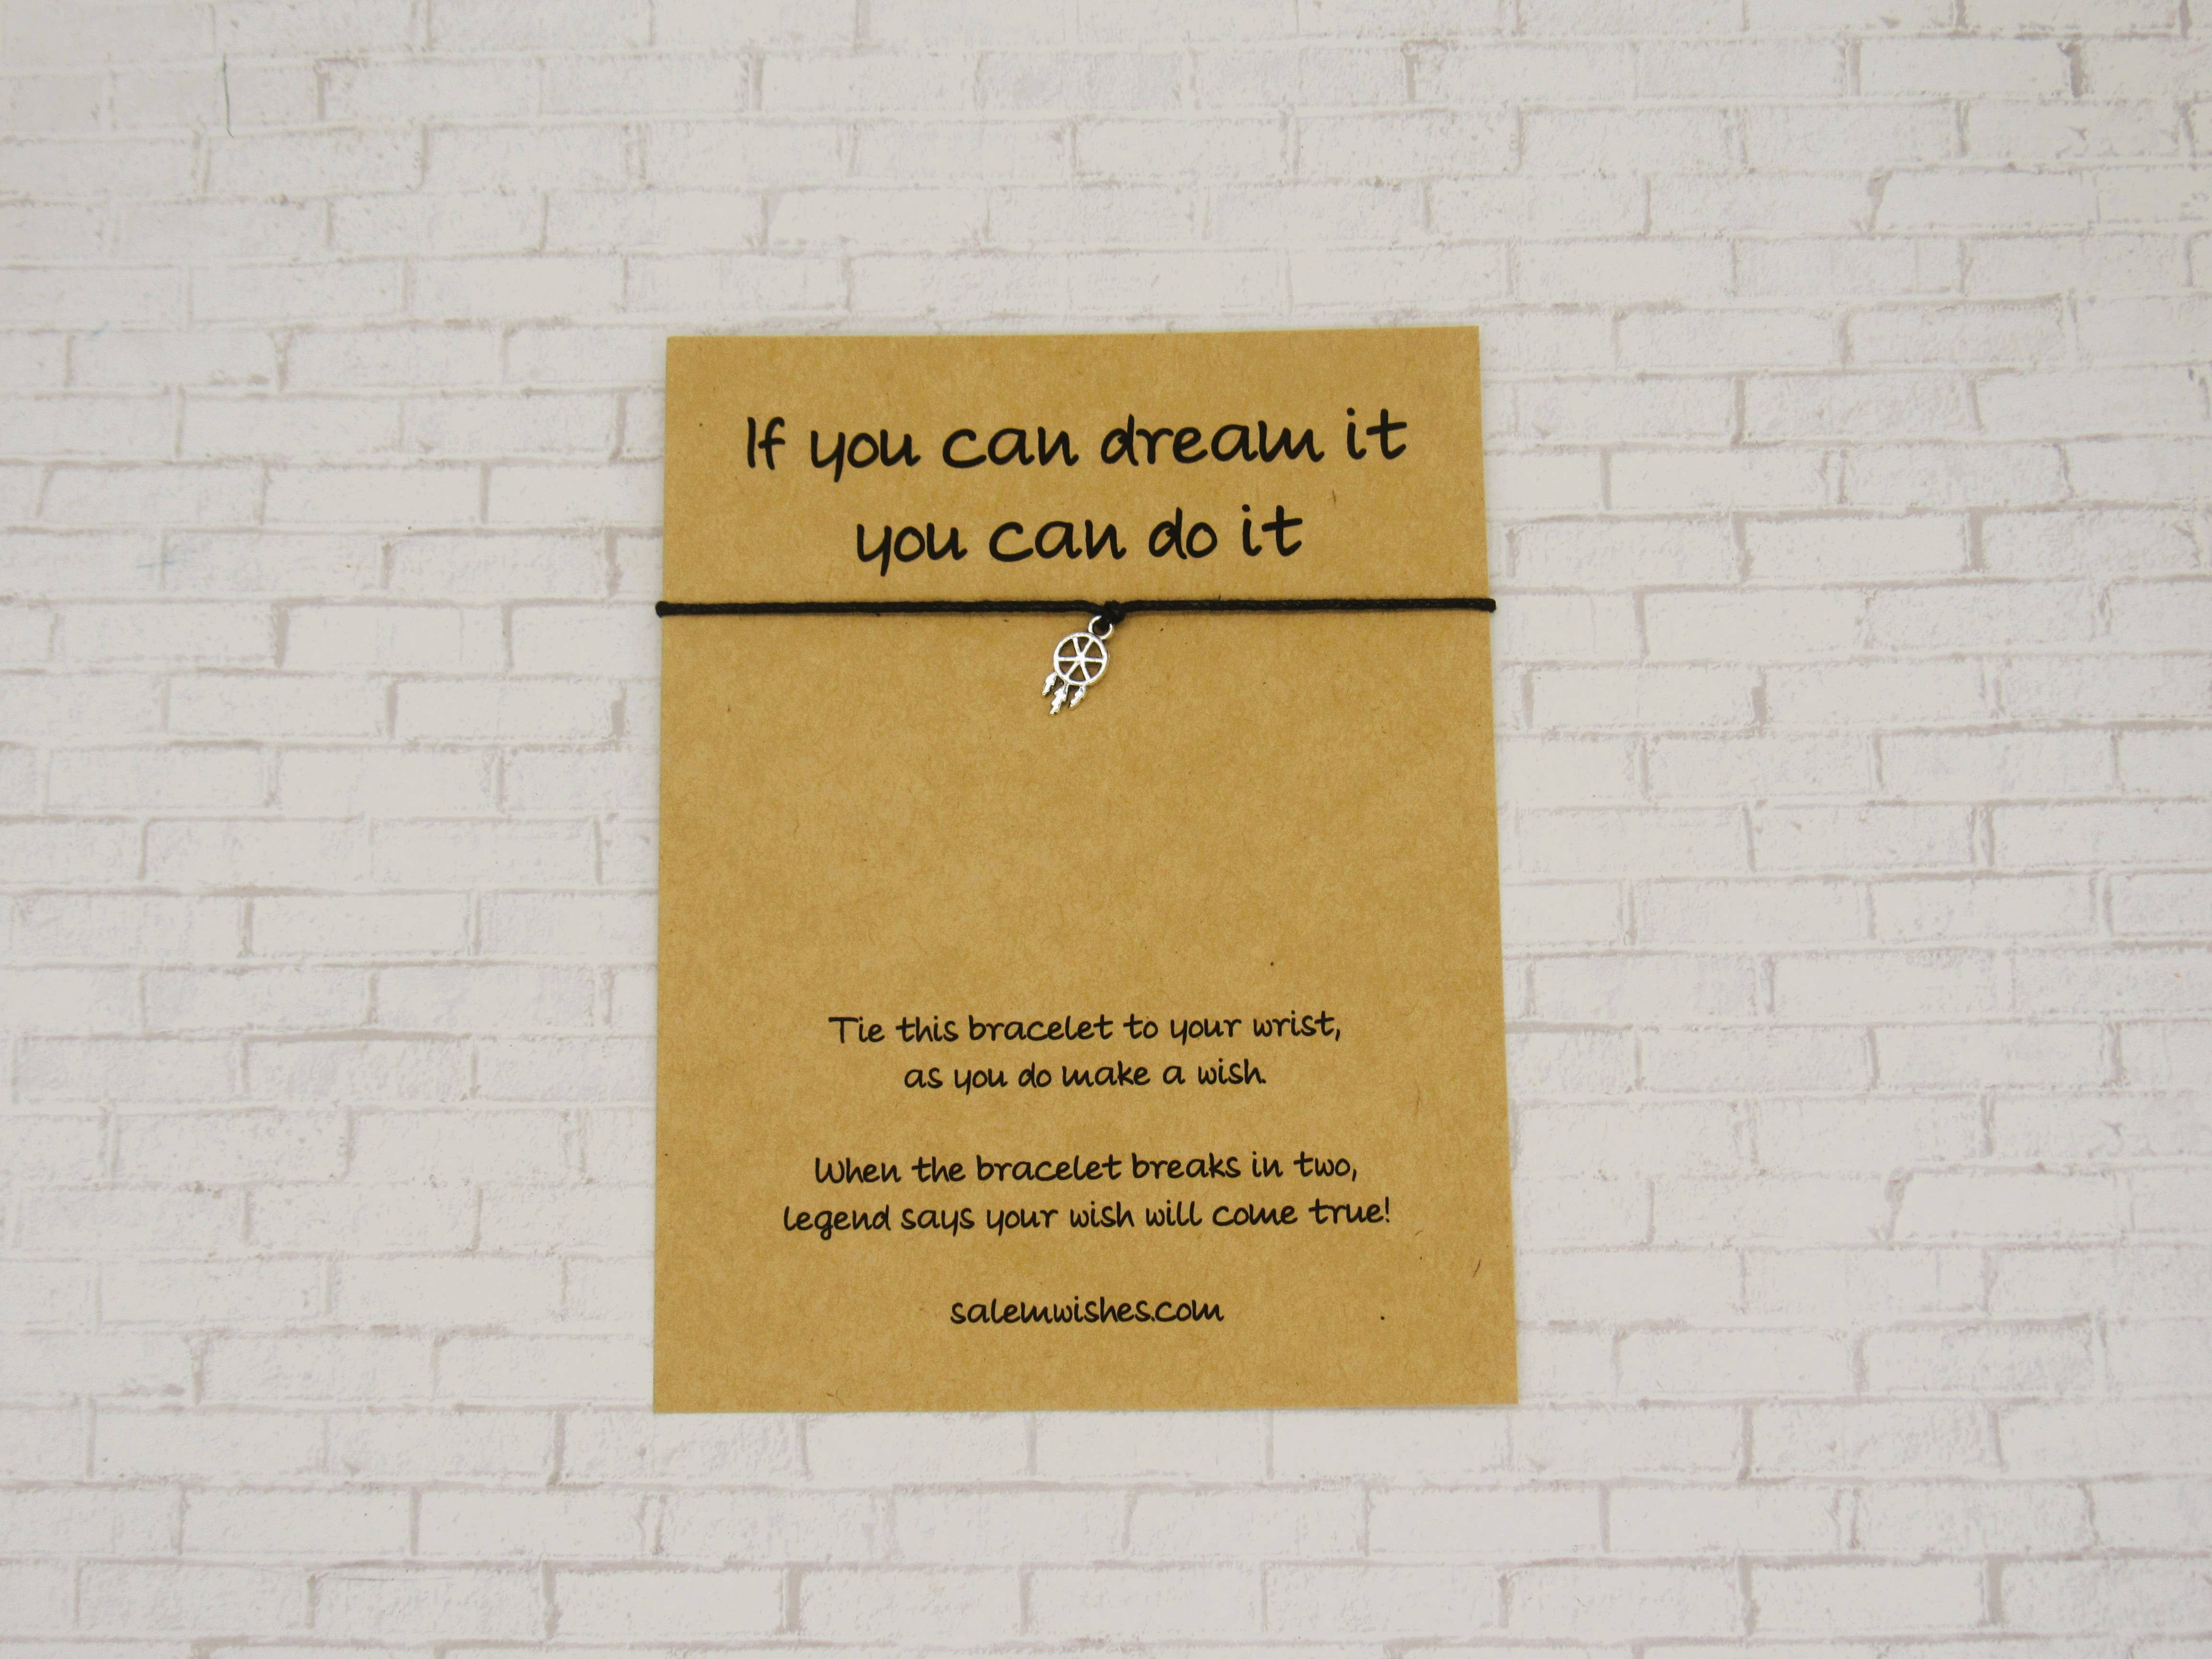 If you can dream it
you can do it
Tie this bracelet to your wrist,
as you do make a wish.
When the bracelet breaks in two,
legend says your wish will come true!
salemwishes.com